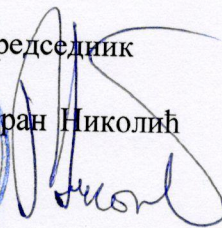 редседник
ран Николић